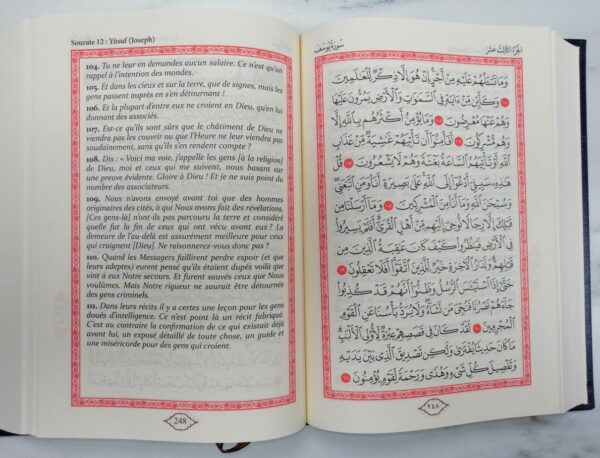 Sourate 12 : Yûsuf (Joseph)
104. Tu ne leur en demandes aucun salaire. Ce n'est qu'un
rappel à l'intention des mondes.
105. Et dans les cieux et sur la terre, que de signes, mais les
gens passent auprès en s'en détournant !
106. Et la plupart d'entre eux ne croient en Dieu, qu'en lui
donnant des associés.
107. Est-ce qu'ils sont sûrs que le châtiment de Dieu ne
viendra pas les couvrir ou que l'Heure ne leur viendra pas
soudainement, sans qu'ils s'en rendent compte ?
108. Dis : « Voici ma voie, j'appelle les gens [à la religion]
de Dieu, moi et ceux qui me suivent, nous basant sur
une preuve évidente. Gloire à Dieu ! Et je ne suis point du
nombre des associateurs.
109. Nous n'avons envoyé avant toi que des hommes
originaires des cités, à qui Nous avons fait des révélations.
[Ces gens-là] n'ont-ils pas parcouru la terre et considéré
quelle fut la fin de ceux qui ont vécu avant eux ? La
demeure de l'au-delà est assurément meilleure pour ceux
qui craignent [Dieu]. Ne raisonnerez-vous donc pas ?
110. Quand les Messagers faillirent perdre espoir (et que
leurs adeptes) eurent pensé qu'ils étaient dupés voilà que
vint à eux Notre secours. Et furent sauvés ceux que Nous
voulûmes. Mais Notre rigueur ne saurait être détournée
des gens criminels.
111. Dans leurs récits il y a certes une leçon pour les gens
doués d'intelligence. Ce n'est point là un récit fabriqué.
C'est au contraire la confirmation de ce qui existait déjà
avant lui, un exposé détaillé de toute chose, un guide et
une miséricorde pour des gens qui croient.
248
سورة يوسف
الجزء الثالث عشر
وَمَا تَسْـَٔلُهُمْ عَلَيْهِ مِنْ أَجْرٍ إِنْ هُوَ إِلَّا ذِكْرٌ لِّلْعَٰلَمِينَ
١٠٤ وَكَأَيِّن مِّنْ ءَايَةٍ فِى ٱلسَّمَٰوَٰتِ وَٱلْأَرْضِ يَمُرُّونَ عَلَيْهَا
وَهُمْ عَنْهَا مُعْرِضُونَ ١٠٥ وَمَا يُؤْمِنُ أَكْثَرُهُم بِٱللَّهِ إِلَّا
وَهُم مُّشْرِكُونَ ١٠٦ أَفَأَمِنُوٓا۟ أَن تَأْتِيَهُمْ غَٰشِيَةٌ مِّنْ عَذَابِ
ٱللَّهِ أَوْ تَأْتِيَهُمُ ٱلسَّاعَةُ بَغْتَةً وَهُمْ لَا يَشْعُرُونَ ١٠٧ قُلْ
هَٰذِهِۦ سَبِيلِىٓ أَدْعُوٓا۟ إِلَى ٱللَّهِ عَلَىٰ بَصِيرَةٍ أَنَا۠ وَمَنِ ٱتَّبَعَنِى
وَسُبْحَٰنَ ٱللَّهِ وَمَآ أَنَا۠ مِنَ ٱلْمُشْرِكِينَ ١٠٨ وَمَآ أَرْسَلْنَا مِن
قَبْلِكَ إِلَّا رِجَالًا نُّوحِىٓ إِلَيْهِم مِّنْ أَهْلِ ٱلْقُرَىٰٓ أَفَلَمْ يَسِيرُوا۟
فِى ٱلْأَرْضِ فَيَنظُرُوا۟ كَيْفَ كَانَ عَٰقِبَةُ ٱلَّذِينَ مِن
قَبْلِهِمْ وَلَدَارُ ٱلْءَاخِرَةِ خَيْرٌ لِّلَّذِينَ ٱتَّقَوْا۟ أَفَلَا تَعْقِلُونَ ١٠٩
حَتَّىٰٓ إِذَا ٱسْتَيْـَٔسَ ٱلرُّسُلُ وَظَنُّوٓا۟ أَنَّهُمْ قَدْ كُذِبُوا۟
جَآءَهُمْ نَصْرُنَا فَنُجِّىَ مَن نَّشَآءُ وَلَا يُرَدُّ بَأْسُنَا عَنِ ٱلْقَوْمِ
ٱلْمُجْرِمِينَ ١١٠ لَقَدْ كَانَ فِى قَصَصِهِمْ عِبْرَةٌ لِّأُو۟لِى ٱلْأَلْبَٰبِ
مَا كَانَ حَدِيثًا يُفْتَرَىٰ وَلَٰكِن تَصْدِيقَ ٱلَّذِى بَيْنَ يَدَيْهِ
وَتَفْصِيلَ كُلِّ شَىْءٍ وَهُدًى وَرَحْمَةً لِّقَوْمٍ يُؤْمِنُونَ ١١١
٢٤٨